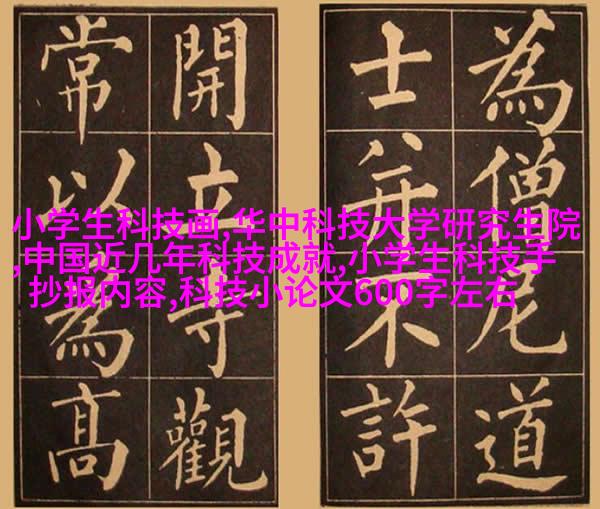 為僧尼道
士并不許
開立寺觀
常以為高
小学生科技画,华中科技大学研究生院
,中国近几年科技成就,小学生科技手
抄报内容,科技小论文600字左右